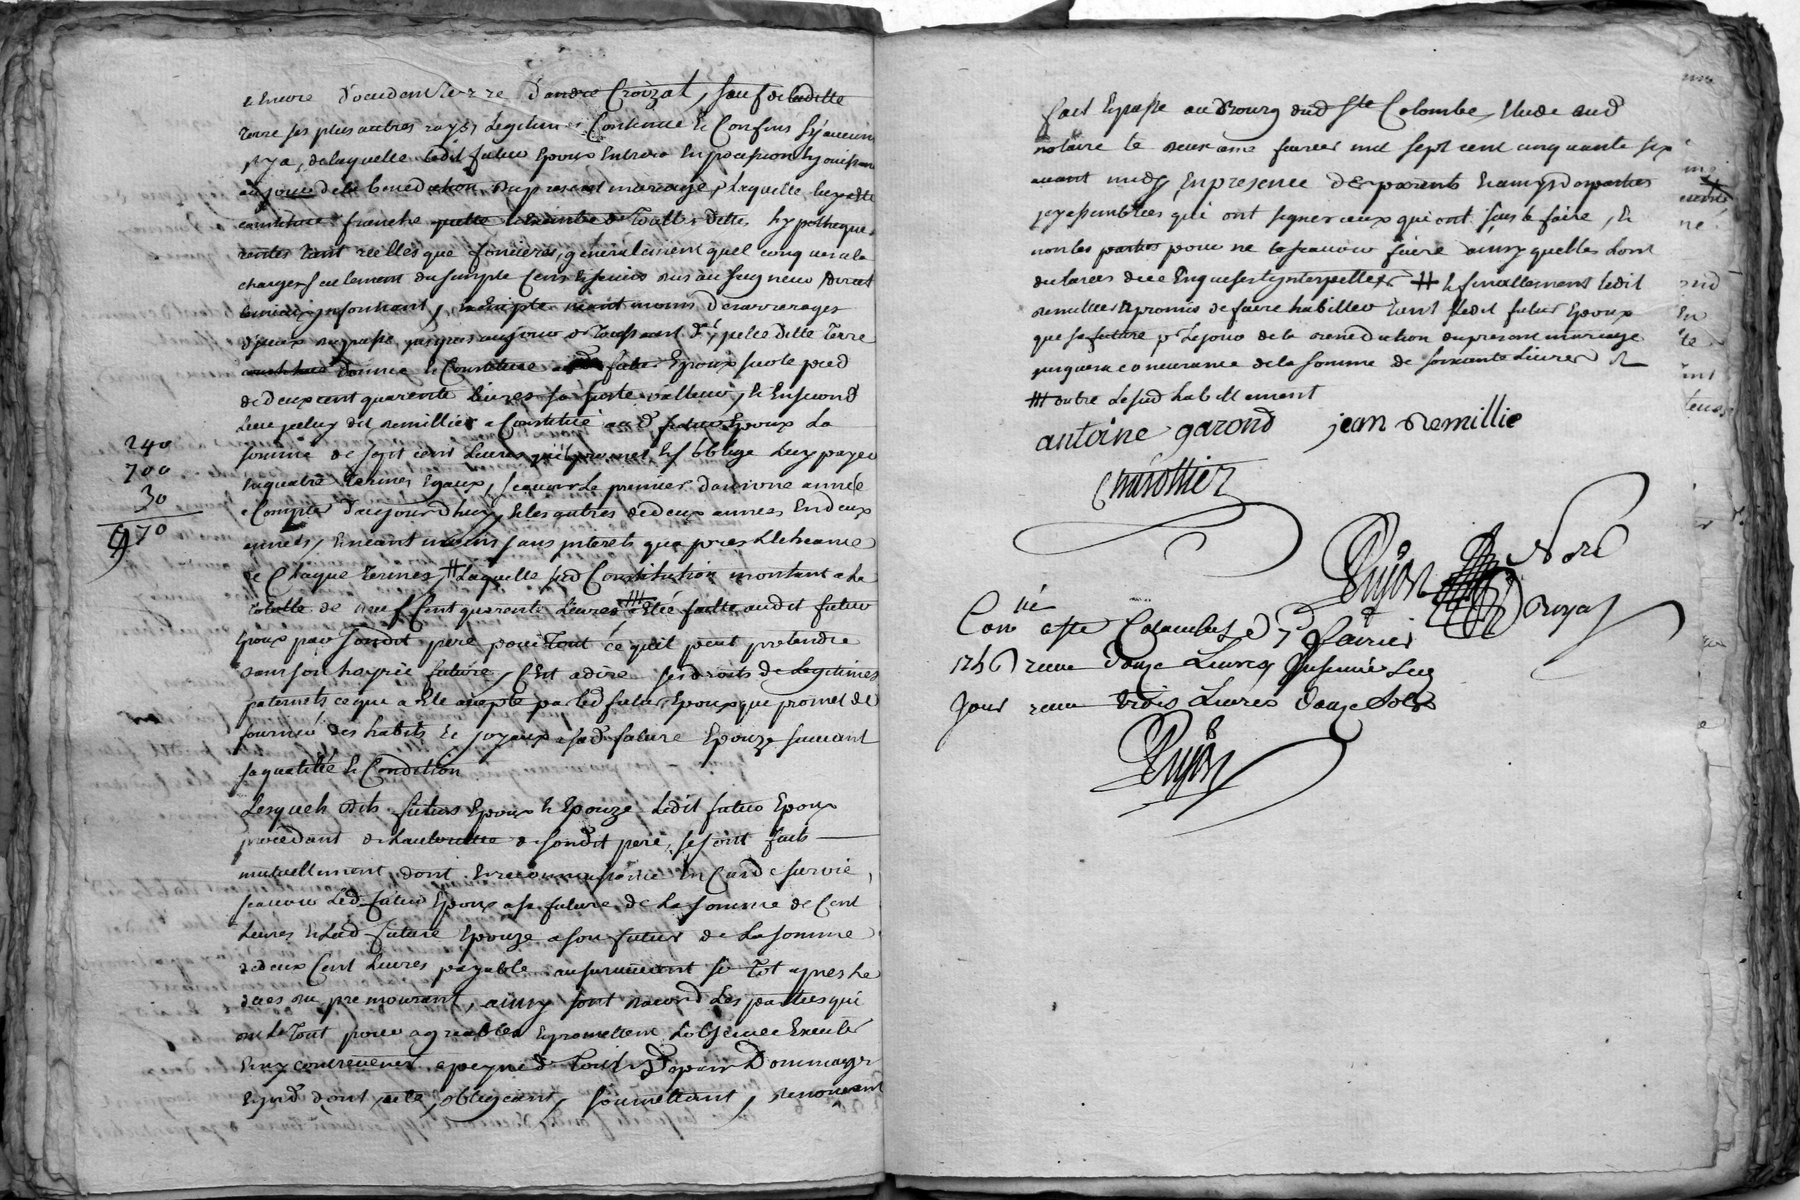 encore d'occident terre d'andré Croizat, sauf de laditte
terre ses plus autres vrays Legitimes Contenue et Confins sy aucuns
il y a, de laquelle ledit futur Epoux Entrera En possession et jouissance
au jour de la benediction du present mariage, Laquelle luy a été
constituée franche quitte et exempte de toutes dettes hypotheques
rentes tant réelles que foncieres, generalement quelconques a la
charge seulement du simple Cens et servis dus au seigneur direct
d'iceux du passé jusques au jour de Toussaint der, quelle ditte Terre
donnée et Constituée aud futur Epoux sur le pied
de deux cent quarente Livres sa juste valleur, et En second
Lieu jceluy dit Remillier a Constitué aud futur Epoux La
240
somme de sept cent Livres qu'il promet et s'oblige Luy payer
700
En quatre termes Egaux, sçavoir Le premier dans une année
30
a Compter d'aujourd'huy, et les autres de deux années En deux
970
années, Et neant moins sans jnterets qu'apres L'echeance
de Chaque termes, # Laquelle sud Constitution montant a la
totalle de neuf Cent quarente Livres ### a Eté faitte audit futur
Epoux par sondit pere pour tout ce qu'il peut pretendre
dans son hoyrie future, C'est a dire ses droits de Legitimes
paternels ce que a Eté accepté par led futur Epoux que promet de
fournir des habits et joyaux a sad future Epouze suivant
sa qualité et Condition
Lesquels dits futurs Epoux et Epouze Ledit futur Epoux
procedant de L'authorité de sondit pere, se sont faits
mutuellement dont Et reconnaissance En Cas de survie,
sçavoir Led futur Epoux a sa future de La somme de Cent
Livres et Lad future Epouze a son futur de La somme
de deux Cent Livres payable au survivant si tot apres le
deces du premourant, ainsy sont d'acord Les parties qui
ont le Tout pour agreable Et promettent L'observer Executer
Et n'y contrevenir a peyne de tous Depens Dommages
dont acte, obligeant, soumettant, renonceant
fait Et passé au Bourg dud Ste Colombe, Etude dud
notaire le deux eme fevrier mil sept cent cinquante six
avant midy En presence d'Es parents Et amys des parties
jcy assemblées qui ont signer ceux qui ont sçus le faire, Et
non les parties pour ne le sçavoir faire ainsy quelles L'ont
declarées de ce Enquises et jnterpellées # Et finallement Ledit
Remillier a promis de faire habiller tant Ledit futur Epoux
que sa future pr Le jour de la Benediction du present mariage
jusqu'a concurance de la somme de soixante Livres
### outre Le sud habillement
antoine garond jean Remillie
Chavottier
Pujon Nore Royal
Conlé a Ste Colombe Le 7e fevrier
1756 receu douze Livres Insinué Led
Jour receu trois Livres douze Sols
Pujon